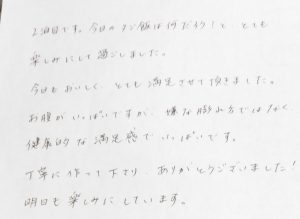 2泊目です。今日の夕ご飯は何だろう！と、とても
楽しみにして過ごしました。
今日もおいしく、とても満足させて頂きました。
お腹がいっぱいですが、嫌な膨れ方ではなく、
健康的な満足感でいっぱいです。
丁寧に作って下さり、ありがとうございました！
明日も楽しみにしています。